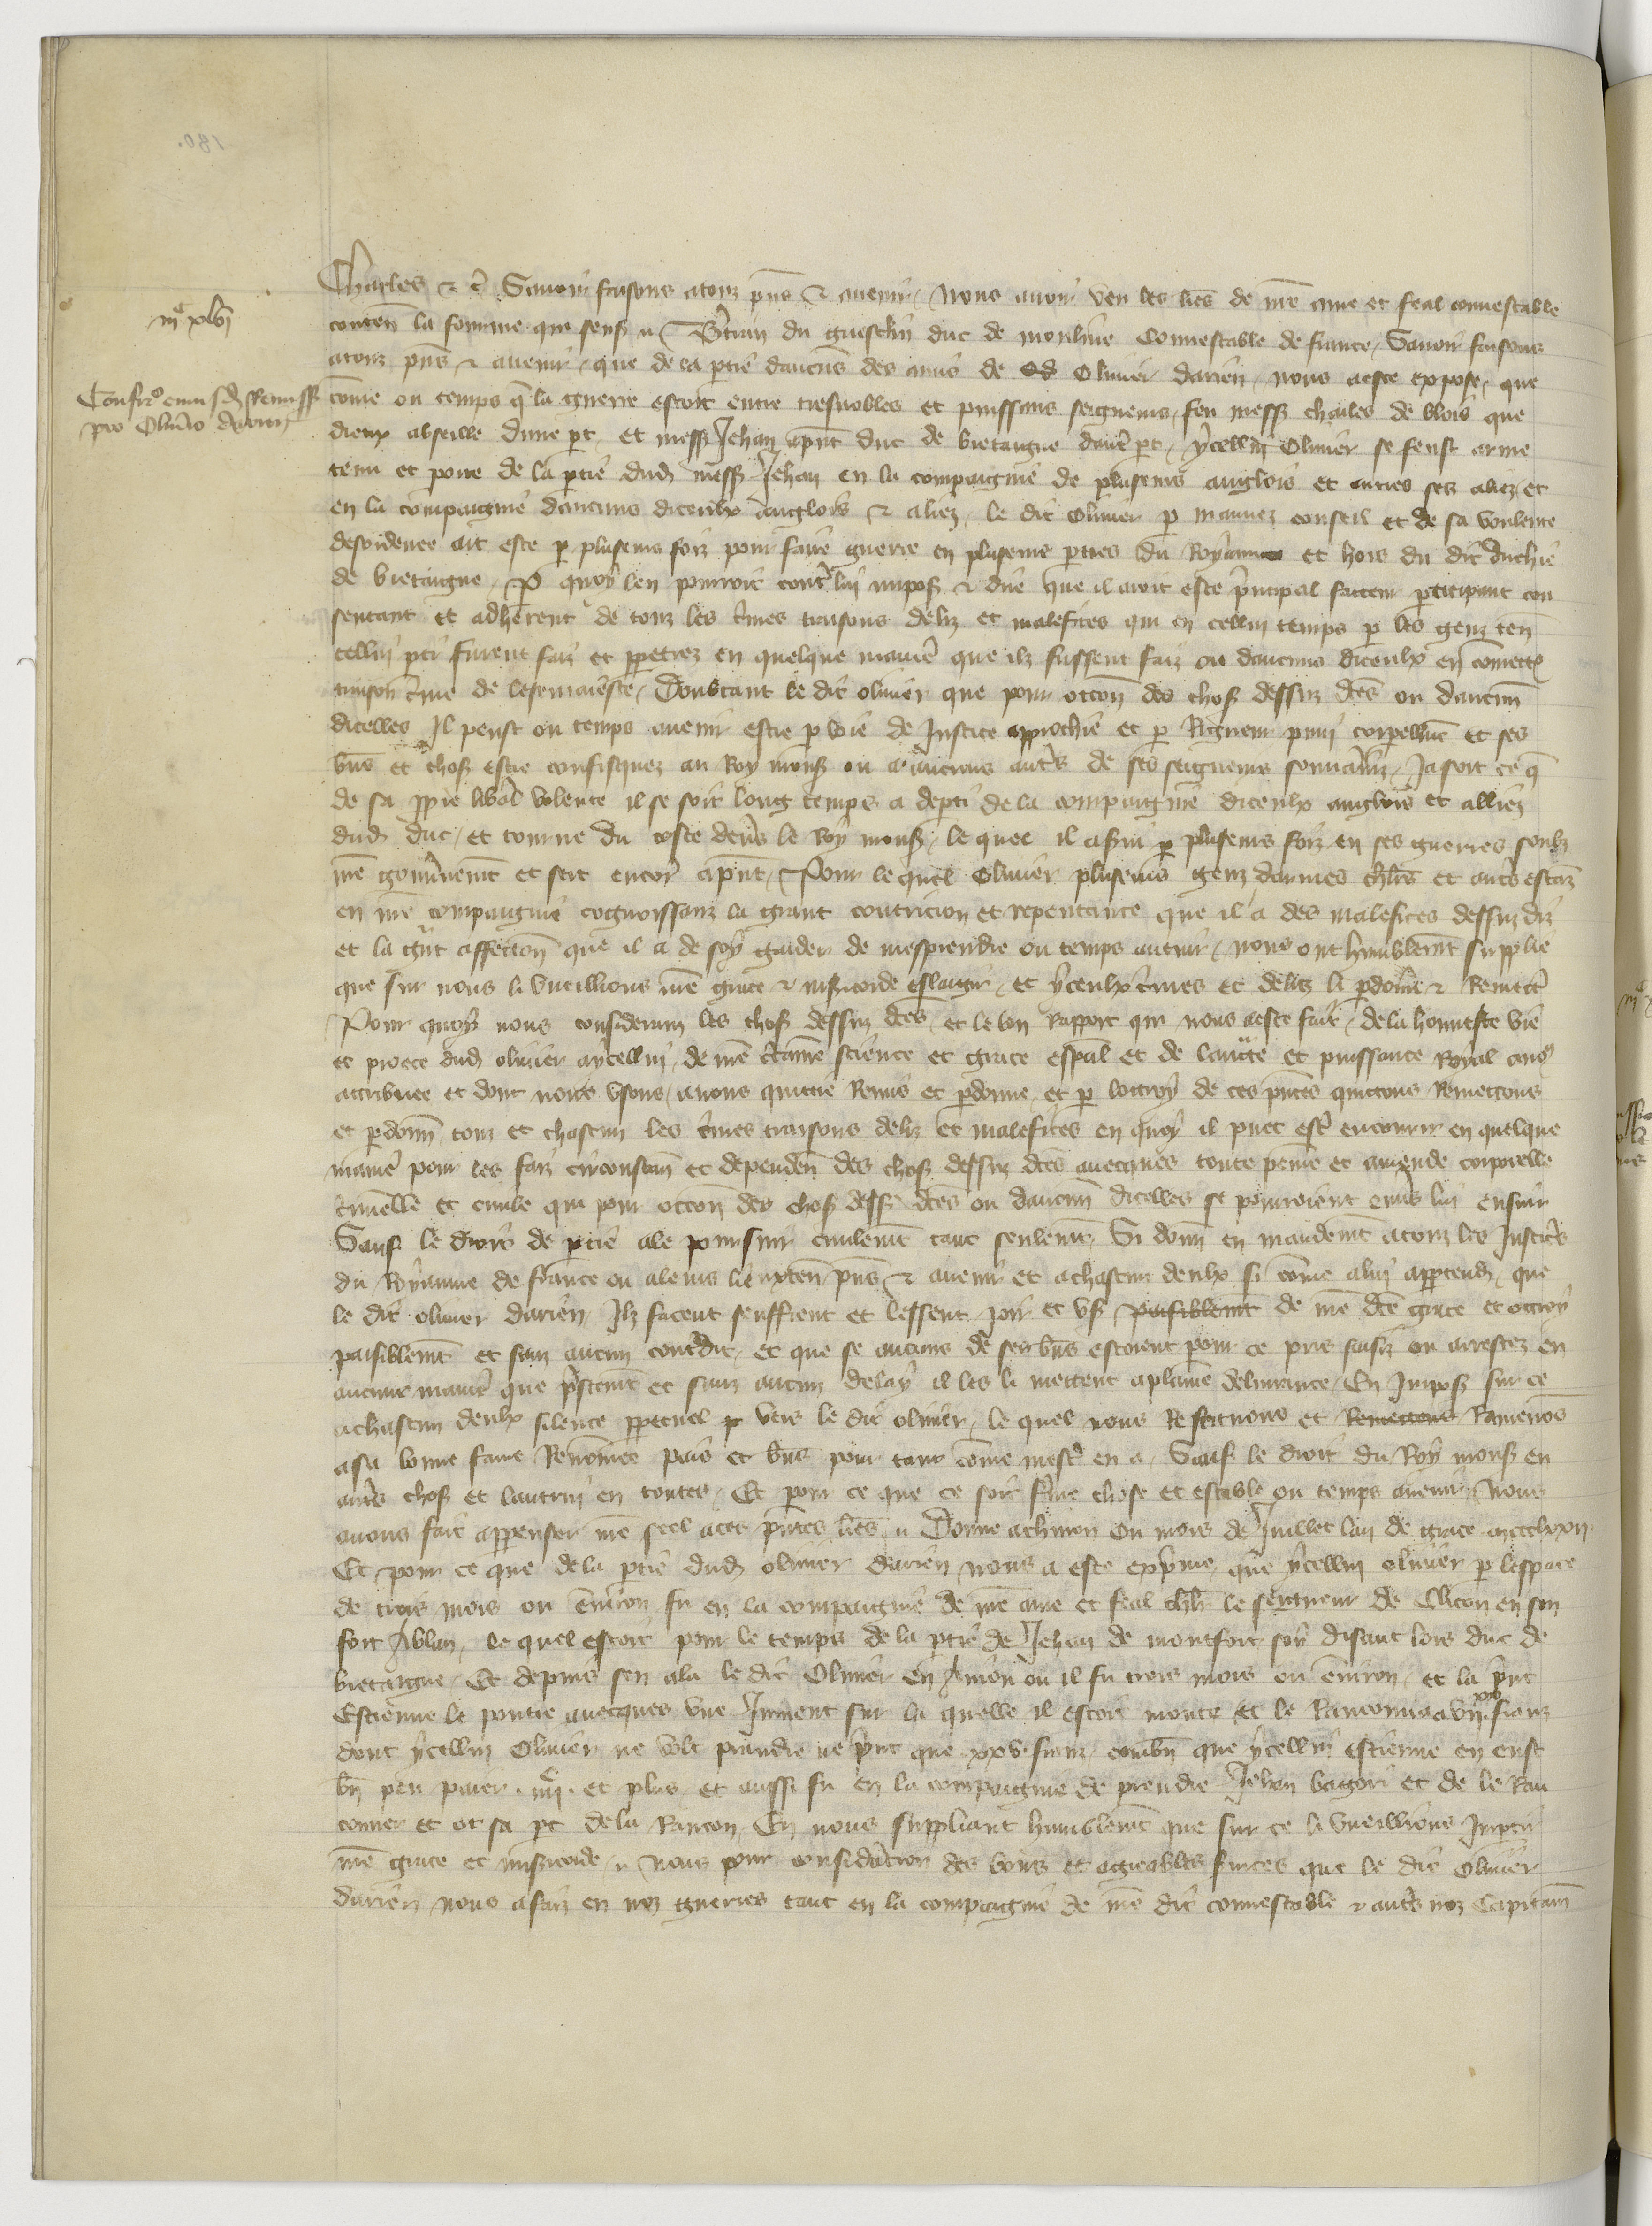 iiiᶜ xlvi
Confirᵒ cuiusd. Remiss.
pro Oliverio Darien
Charles & c̄ Savoir faisons a touz pn̄s & avenir, nous avoir veu les lr̄es de nr̄e ame et feal connestable
conten̄ la fourme qui sensuit Bertran du guesclin duc de mouline Connestable de france, Savoir faisons
a touz pn̄s & avenir, que de la ptie daucuns des amis de Olivier darien, nous a este expose, que
cōme ou temps q̄ la guerre estoit entre tresnobles et puissans seigneurs, feu mess. charles de blois que
dieux absoille dune pt, et mess. Jehan apn̄t duc de bretaigne dautre pt, ycellui Olivier se feust arme
tenu et porte de la ptie dud. mess. Jehan en la compaignie de pluseurs anglois et autres ses aliez, et
en la compaignie daucuns diceulx Anglois & aliez, le dit Olivier p mauvez conseil et de sa voulente
desordenee ait este p pluseurs foiz pour faire guerre en pluseurs pties du Royaume et hors du dit duchie
de bretaigne, P quoy len pourroit contre lui impos. & dire que il avoit este principal facteur pticipant con
sentant et adherent de touz les c̄mes traisons deliz et malefices qui en cellui temps p les genz ten̄
cellui pti furent faiz et ppetrez en quelque maniere que ilz fussent faiz ou daucuns diceulx en comett.
traison c̄me de lesemaieste, Doubtant le dit olivier que pour occōn des chos. dessuz dc̄es ou daucun̄
dicelles Il peust ou temps avenir estre p voie de Justice approchie et p Rigueur puni corpellm̄t et ses
bn̄s et chos. estre confisquez au Roy mons. ou a aucuns autrs de ses seigneurs souverains, Jasoit ce q̄
de sa ppre liberal volente il se soit long temps a depti de la compaignie diceulx anglois et alliez
dud. duc, et tourne du coste devers le Roy mons., le quel il a servi p pluseurs foiz en ses guerres soubz
nr̄e gouvernem̄t et sert encores apn̄t, Pour le quel Olivier pluseurs genz darmes chl̄rs et autrs estanz
en nr̄e compaignie cognoissanz la grant contricion et repentance que il a des malefices dessuz diz
et la gr̄nt affection que il a de soy garder de mesprendre ou temps avenir, nous ont humblem̄t supplie
que sur nous li vueillions nr̄e grace & misericorde eslargir, et yceulx c̄mes et deliz li pdoner & Remettre
Pour quoy nous considerans les chos. dessuz dc̄es, et le bon Rapport qui nous a este fait, de la honneste vie
et proece dud. olivier a ycellui, de nr̄e certaine science et grace esp̄al et de lauctorite et puissance Royal a nous
attribuee et dont nous usons, avons quittie Remis et pdonne, et p loctroy de ces pn̄tes quittons Remettons
et pdonn̄ touz et chascun les c̄mes traisons deliz et malefices en quoy il puet estre encourur en quelque
maniere pour les faiz circonstan̄ et dependen̄ des chos. dessuz dc̄es avecques toute peine et amende corporelle
c̄minelle et civile qui pour occōn des chos. dess. dc̄es ou daucun̄ dicelles se pourroient envers lui ensuir
Sauf le droit de ptie a le poursuir civilem̄t tant seulem̄t, Si donn̄ en mandem̄t a touz les Justicrs
du Royaume de france ou a leurs lieuxten̄ pn̄s & avenir et a chascun deulx si cōme a lui apptendr. que
le dit olivier darien, Ilz facent seuffrent et lessent joir et us. paisiblem̄t de nr̄e dc̄e grace et ottroy
paisiblem̄t et sanz aucun contredit, et que se aucuns de ses bn̄s estoient pour ce pris saisiz ou arrestez en
aucune maniere que prestem̄t et sanz aucun delay il les li mettent a plaine delivrance, En Impos. sur ce
a chascun deulx silence ppetuel vers le dit olivier, le quel nous Restituons et Remettons Ramenōs
a sa bonne fame Renōmee pais et bn̄s pour tant cōme mestr en a, Sauf le droit du Roy mons. en
autres chos. et lautruy en toutes, Et pour ce que ce soit ferme chose et estable ou temps avenir, Nous
avons fait appenser nr̄e seel a ces pn̄tes lr̄es Donne a chinon Ou mois de Juillet lan de grace mccclxxii
Et pour ce que de la ptie dud. olivier darien nous a este exprime, que ycellui olivier p lespace
de trois mois ou environ fu en la compaignie de nr̄e ame et feal chl̄r le seigneur de Clicon en son
fort Ablain, le quel estoit pour le temps de la ptie de Jehan de montfort soy disant lors duc de
bretaigne, Et depuis sen ala le dit Olivier en Anjou ou il fu trois mois ou environ, et la print
Estienne le pontre avecques une Jument sur la quelle il estoit monte et le Ranconna a vi xx frans
dont ycellui Olivier ne volt prandre ne print que xxv. frans, combn̄ que ycellui estienne en eust
bn̄ peu paier iiiiᶜ. et plus et aussi fu en la compaignie de prendre Jehan bagori et de le Ran
conner et ot sa pt de la Rancon, En nous suppliant humblem̄t que sur ce li vueillions Imptir
nr̄e grace et misericorde, Nous pour consideracion des bons et agreables services que le dit Olivier
darien nous a faiz en noz guerres tant en la compaignie de nr̄e dit connestable & autrs noz Capitain̄